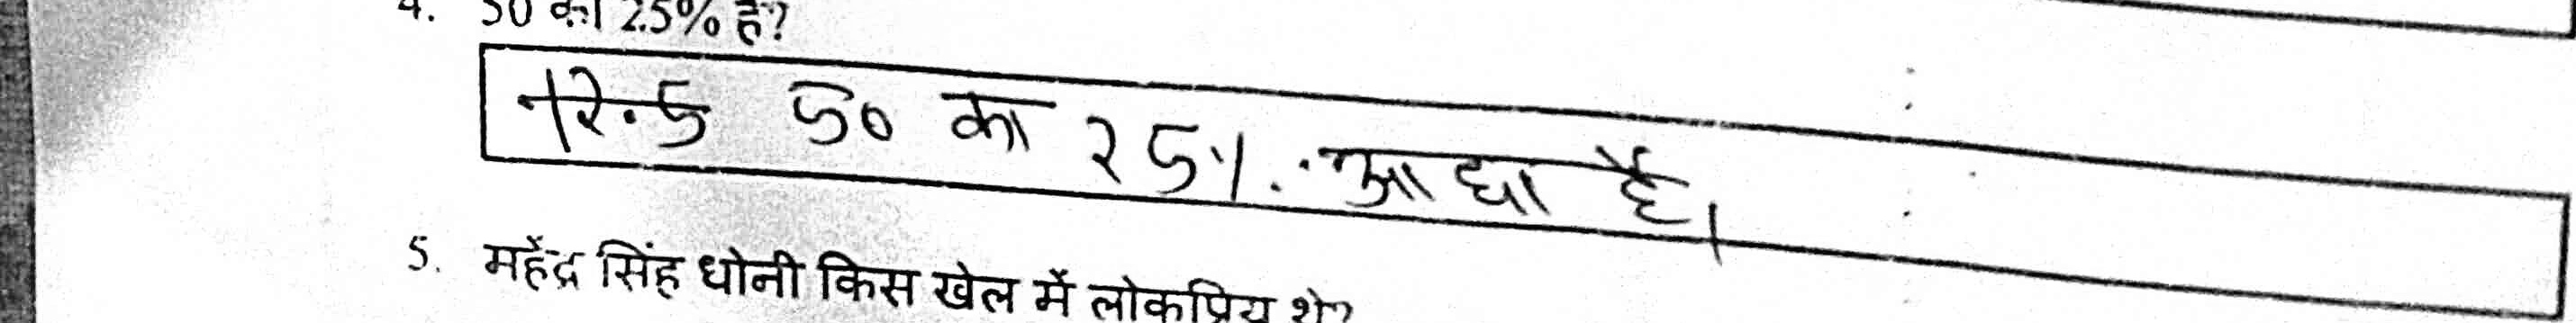 4. 50 का 25% है?
12.5 50 का 25% आधा है।
5. महेंद्र सिंह धोनी किस खेल में लोकप्रिय थे?